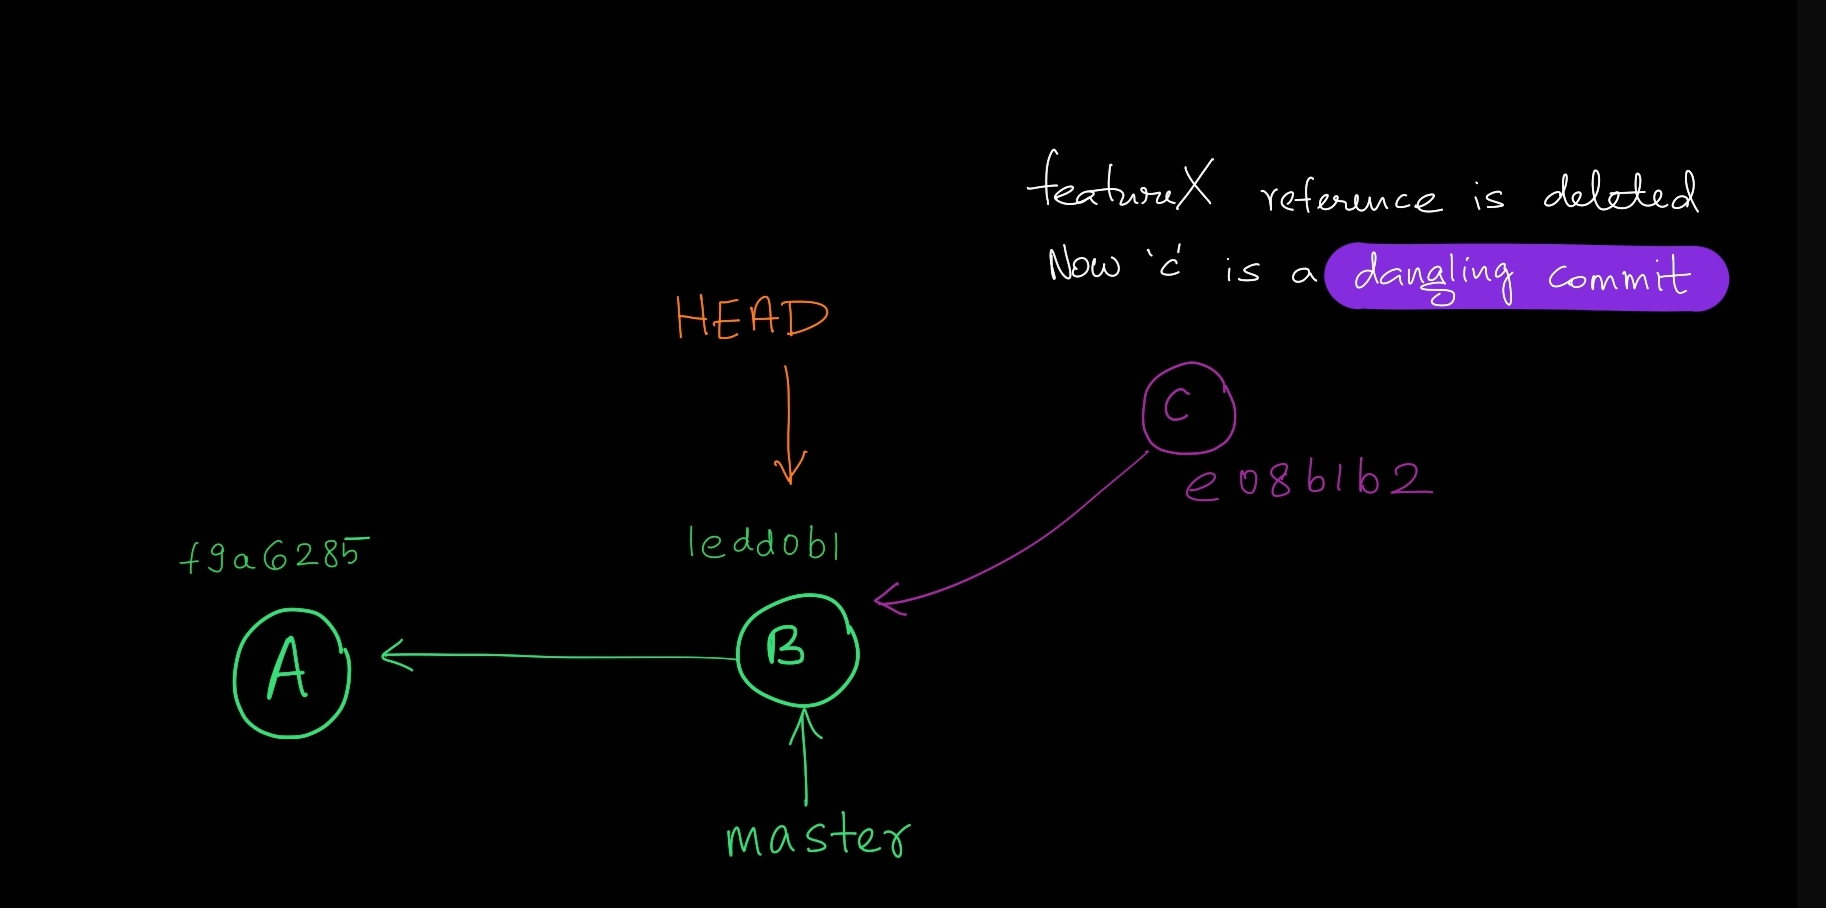 featureX reference is deleted
Now 'c' is a dangling commit
HEAD
C
e08b1b2
f9a6285
1edd0b1
A
B
master